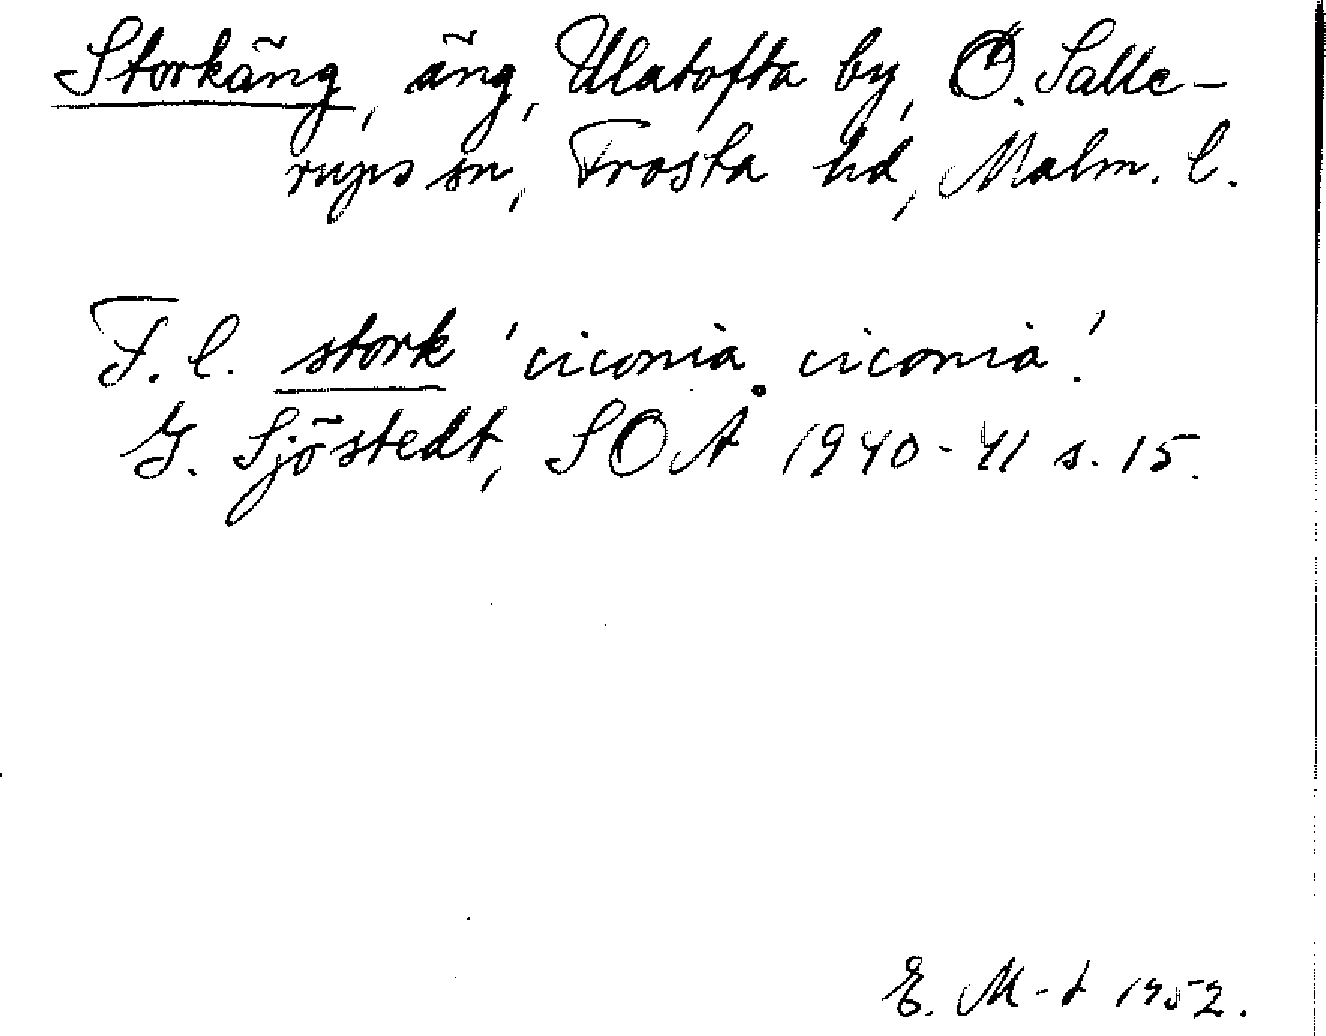 Storkäng, äng, Ulatofta by, Ö. Salle-
rups sn, Frosta hd, Malm. l.
F. l. stork 'ciconia ciconia'.
G. Sjöstedt, SOÅ 1940-41 s. 15.
E. M-t 1952.